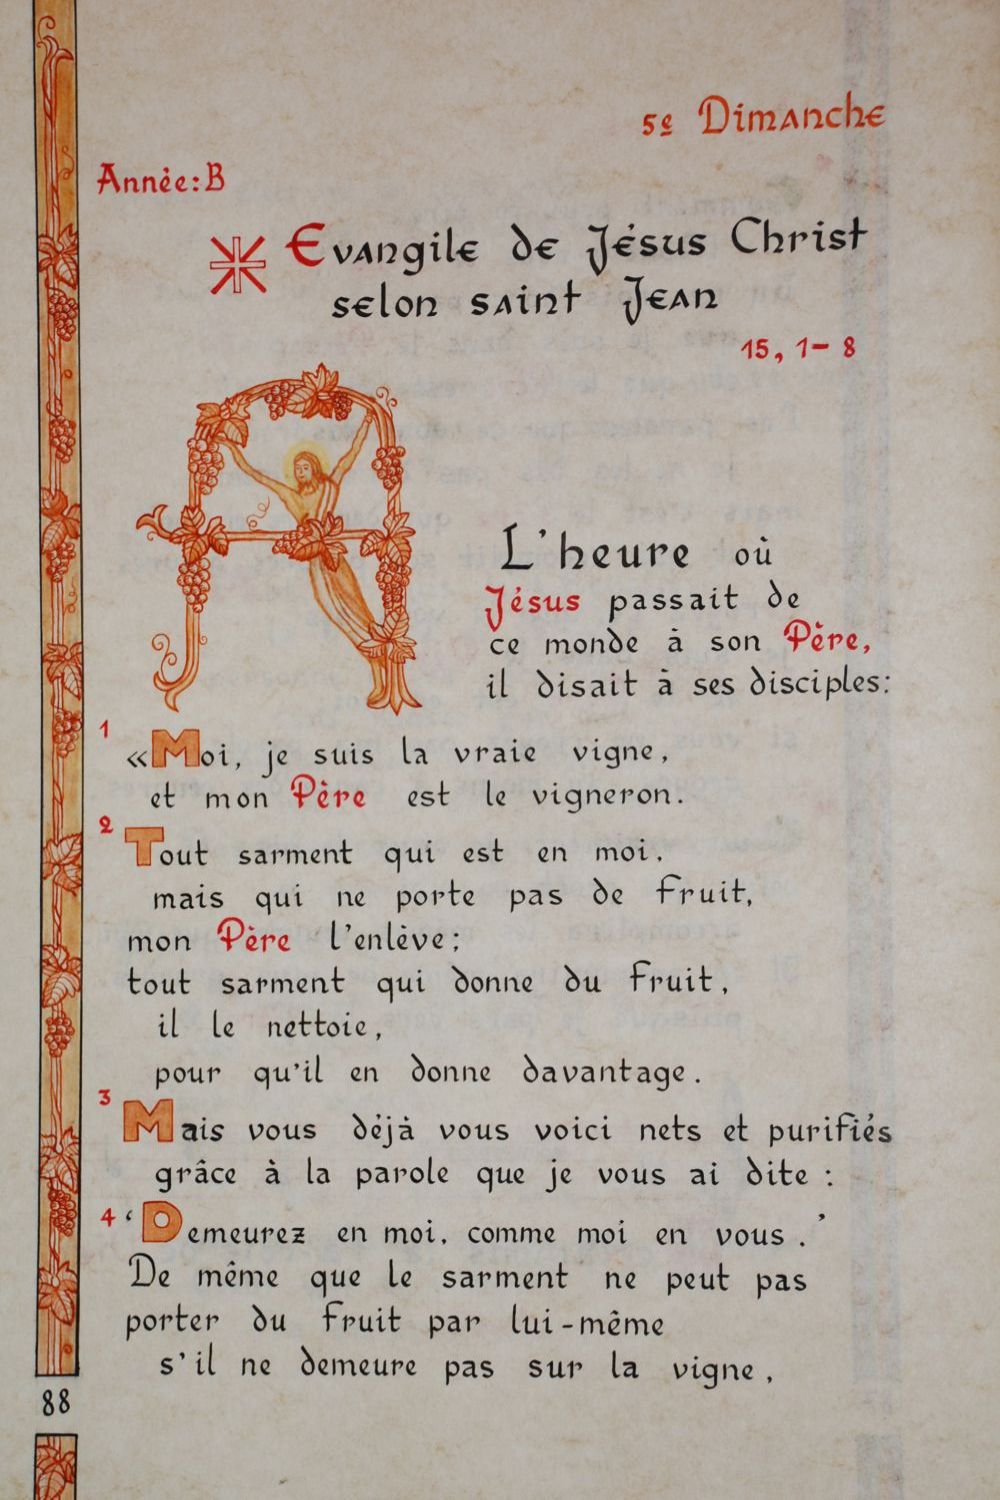 5e Dimanche
Année:B
Evangile de Jésus Christ
selon saint Jean
15, 1-8
A
L'heure où
Jésus passait de
ce monde à son Père,
il disait à ses disciples:
1
«Moi, je suis la vraie vigne,
et mon Père est le vigneron.
2
Tout sarment qui est en moi,
mais qui ne porte pas de fruit,
mon Père l'enlève;
tout sarment qui donne du fruit,
il le nettoie,
pour qu'il en donne davantage.
3
Mais vous déjà vous voici nets et purifiés
grâce à la parole que je vous ai dite :
4 ‘Demeurez en moi, comme moi en vous.’
De même que le sarment ne peut pas
porter du fruit par lui-même
s'il ne demeure pas sur la vigne,
88